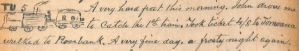 TU 5 A very hard frost this morning. John drove me
to catch the 1st train, Took ticket 4/6 to Donavour
walked to Rosebank, A very fine day, a frosty night again.